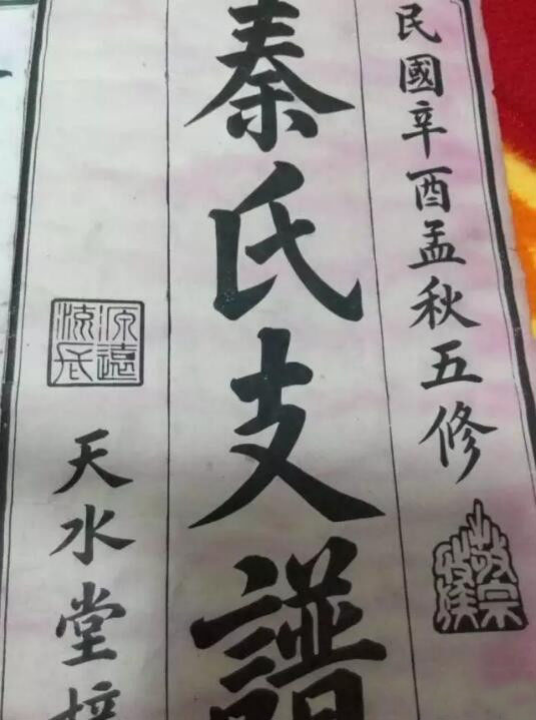 民國辛酉孟秋五修
敬宗
收族
秦氏支譜
源遠
流長
天水堂